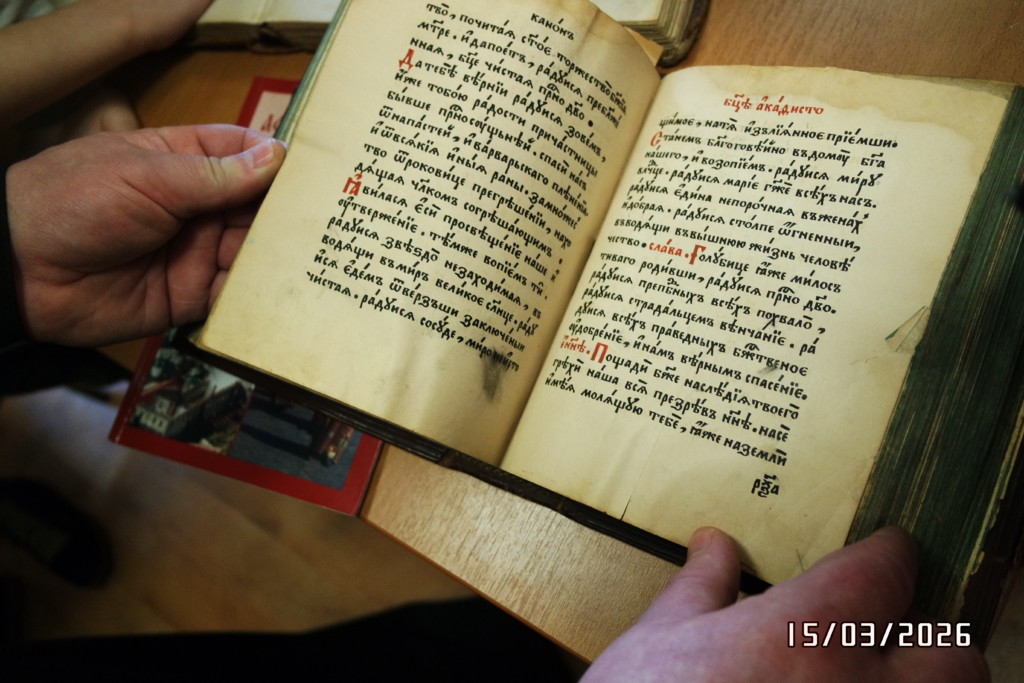 канѡ́нъ
тво̀, почита́ѧ ст҃о́е торжество̀
мт҃ре. и҆ да пое́тъ, ра́дꙋйсѧ пребл҃же́
ннаѧ, бц҃е чи́стаѧ прⷭ҇но дв҃о.
Да тебѣ̀ вѣ́рнїи ра́дꙋйсѧ зове́мъ,
и҆́же тобо́ю ра́дости прича́стницы
бы́вше прⷭ҇носꙋ́щныѧ. спасѝ на́съ
ѿ напа́стей, и҆ ва́рварьскагѡ плѣне́нїѧ
и҆ ѿ всѧ́кїѧ и҆ны́ѧ ра́ны. за мно́жес
тво ѻ҆трокови́це прегрѣше́нїи, нахо
дѧ́щаѧ чл҃комъ согрѣша́ющимъ.
Ꙗ҆ви́ласѧ є҆сѝ просвѣще́нїе на́ше и҆
ѹ҆твержде́нїе. тѣ́мже вопїе́мъ тѝ.
ра́дꙋйсѧ ѕвѣздо̀ незаходи́маѧ, в
водѧ́щи въ ми́ръ вели́кое сл҃нце. ра́дꙋ
йсѧ є҆де́мъ ѿве́рзъши заключе́ныи
чи́стаѧ. ра́дꙋйсѧ сосꙋ́де, мѵ́ро
бц҃ѣ а҆ка́ѳисто
щи́мое, на тѧ̀ и҆злїѧ́нное прїе́мши.
Ста́немъ бл҃гогове́йно въ домꙋ̀ бг҃а
на́шегѡ, и҆ возопїе́мъ. ра́дꙋйсѧ ми́рꙋ
влⷣчце. ра́дꙋйсѧ марі́е гж҃е всѣ́хъ на́съ.
ра́дꙋйсѧ є҆ди́на непоро́чная въ жена́хъ
и҆ до́браѧ. ра́дꙋйсѧ сто́лпе ѻ҆́гненныи,
въводѧ́щи въ вы́шнюю жи́знь человѣ́
чество. сла́ва. Голꙋби́це ꙗ҆́же ми́лосъ
ти́ваго ро́дивши, ра́дꙋйсѧ прⷭ҇но дв҃о.
ра́дꙋйсѧ прпⷣбныхъ всѣ́хъ похвало̀,
ра́дꙋйсѧ страда́льцемъ вѣнча́нїе. ра́
дꙋйсѧ всѣ́хъ пра́ведныхъ бжⷭ҇твеное
ѹ҆добре́нїе, и҆ на́мъ вѣ́рнымъ спасе́нїе.
и҆ ны́нѣ. Пощадѝ бж҃е наслѣ́дїѧ твоегѡ̀
грѣхѝ на́ша всѧ̀ презрѣ́въ нн҃ѣ. на сѐ
и҆мѣ́ѧ молѧ́щꙋю тебѐ, ꙗ҆́же на землѝ